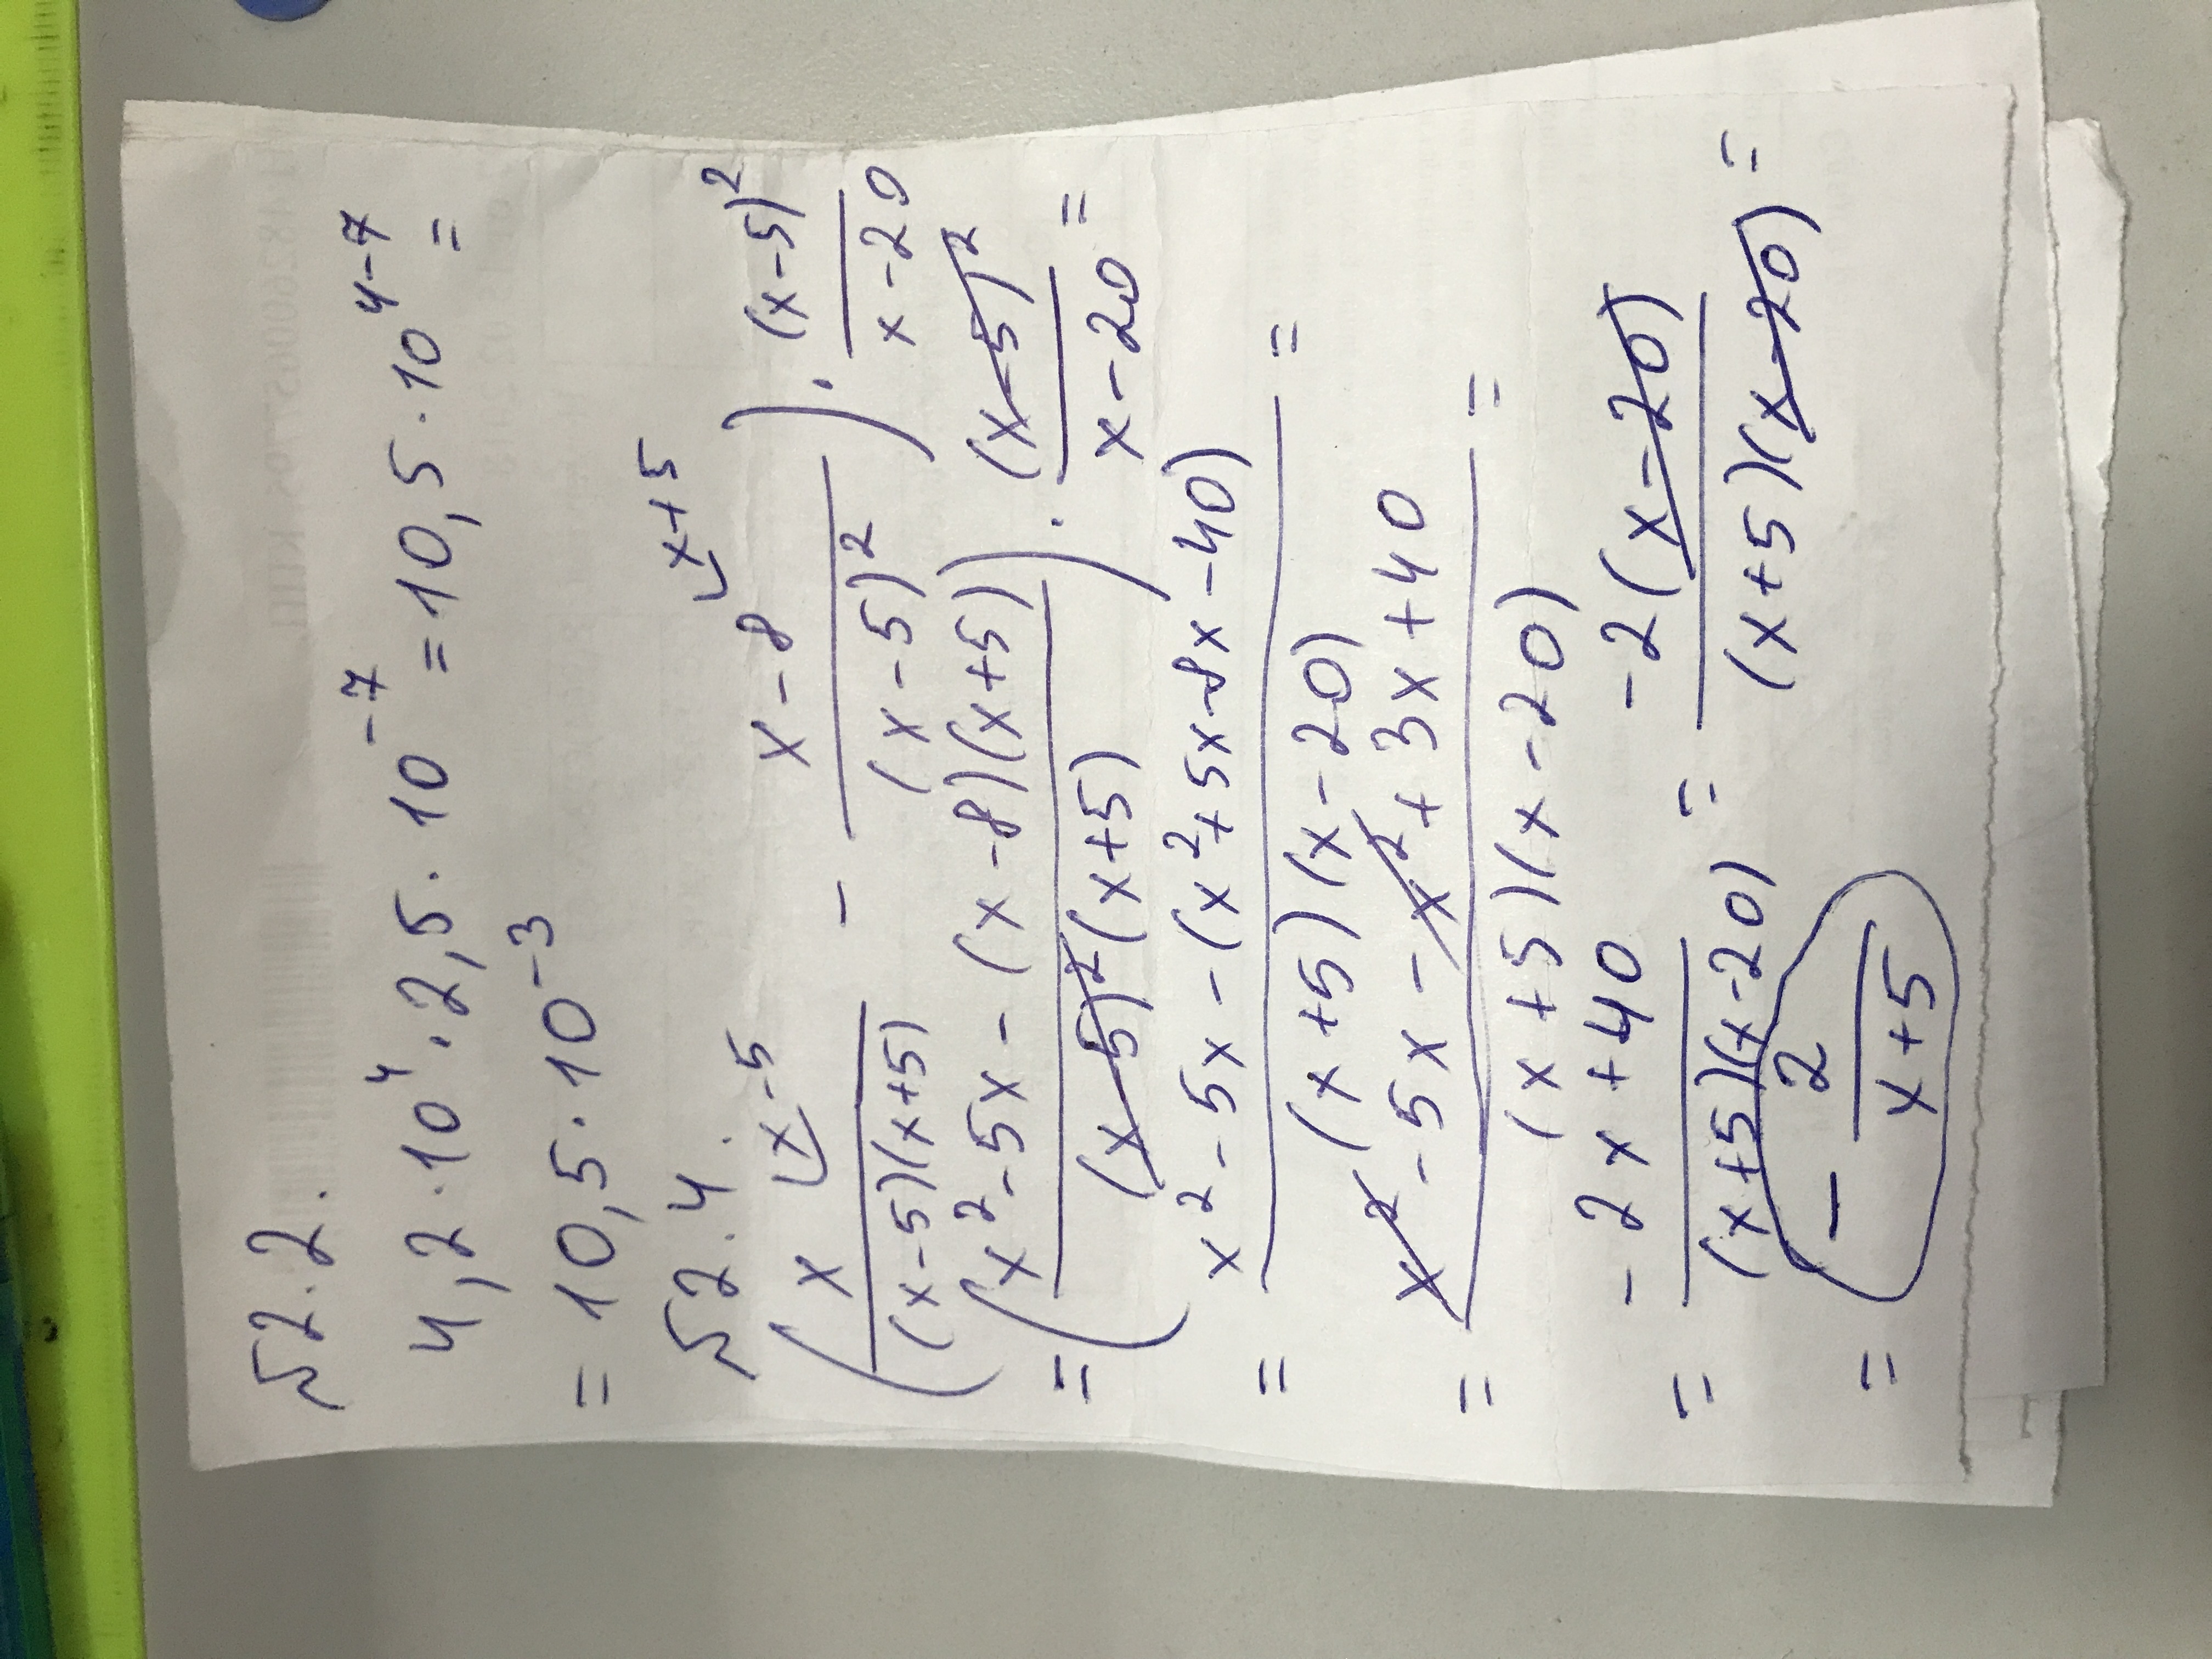 №2.2.
4,2·10⁴·2,5·10⁻⁷ = 10,5·10⁴⁻⁷ =
= 10,5·10⁻³
№2.4.
(x ⌊x-5 / (x-5)(x+5) - x-8 ⌊x+5 / (x-5)²) · (x-5)² / x-20
= (x²-5x-(x-8)(x+5) / (x-5)²(x+5)) · (x-5)² / x-20 =
= x²-5x-(x²+5x-8x-40) / (x+5)(x-20) =
= x²-5x-x²+3x+40 / (x+5)(x-20) =
= -2x+40 / (x+5)(x-20) = -2(x-20) / (x+5)(x-20) =
= - 2 / x+5